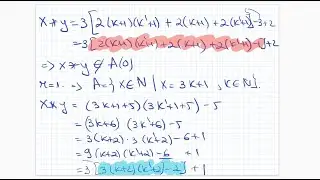 x*y = 3[2(k+1)(k'+1) + 2(k+1) + 2(k'+1)] - 3 + 2
= 3[3(k+1)(k'+1) + 2(k+1) + 2(k'+1) - 1] + 2
=> x*y ∉ A(0)
r=1. => A = {x∈N | x = 3k+1, k∈N}.
x*y = (3k+1+5)(3k'+1+5) - 5
= (3k+6)(3k'+6) - 5
= 3(k+2) . 3(k'+2) - 6 + 1
= 9(k+2)(k'+2) - 6 + 1
= 3[3(k+2)(k'+2) - 2] + 1